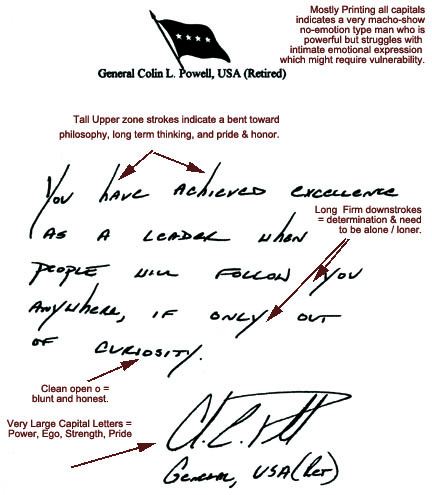 Mostly Printing all capitals
indicates a very macho-show
no-emotion type man who is
powerful but struggles with
intimate emotional expression
which might require vulnerability.
General Colin L. Powell, USA (Retired)
Tall Upper zone strokes indicate a bent toward
philosophy, long term thinking, and pride & honor.
You have achieved excellence
as a leader when
people will follow you
anywhere, if only out
of curiosity.
Long Firm downstrokes
= determination & need
to be alone / loner.
Clean open o =
blunt and honest.
Very Large Capital Letters =
Power, Ego, Strength, Pride
General, USA (Ret)